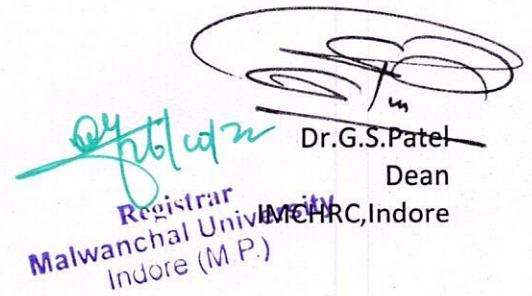 Dr.G.S.Patel
Dean
IMCHRC,Indore
Registrar
Malwanchal University
Indore (M P.)